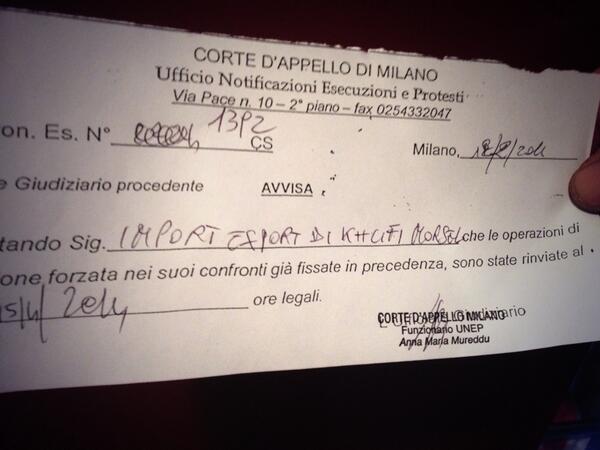 CORTE D'APPELLO DI MILANO
Ufficio Notificazioni Esecuzioni e Protesti
Via Pace n. 10 – 2° piano – fax 0254332047
on. Es. N° 1392 CS
Milano,
e Giudiziario procedente AVVISA
tando Sig. IMPORT EXPORT DI KHLIFI MORSEL che le operazioni di
one forzata nei suoi confronti già fissate in precedenza, sono state rinviate al
2014 ore legali.
CORTE D'APPELLO MILANO
Giudiziario
Funzionario UNEP
Anna Maria Mureddu